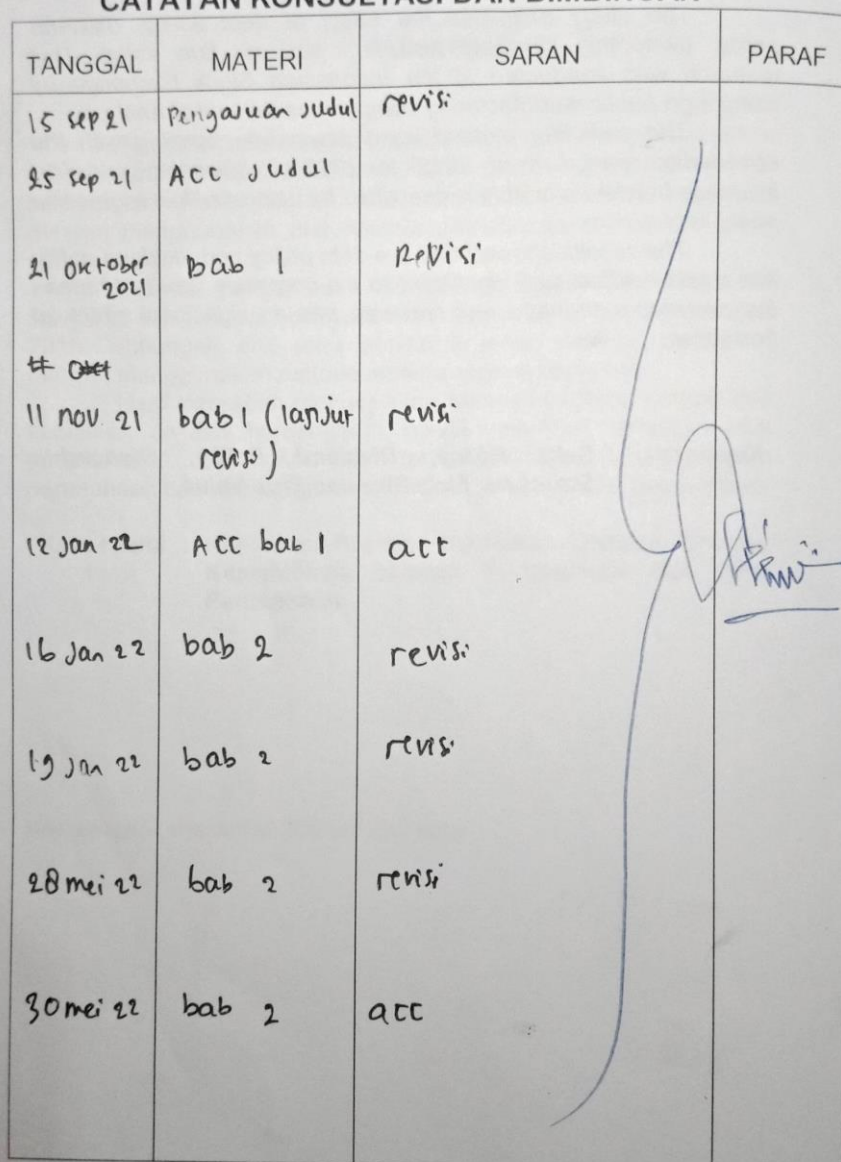 CATATAN KONSULTASI DAN BIMBINGAN
TANGGAL MATERI SARAN PARAF
15 sep 21 Pengajuan Judul revisi
25 sep 21 ACC Judul
21 oktober bab 1 Revisi
2021
11 nov 21 bab 1 (lanjut revisi
revisi)
12 Jan 22 ACC bab 1 acc
16 Jan 22 bab 2 revisi
19 Jan 22 bab 2 revisi
28 mei 22 bab 2 revisi
30 mei 22 bab 2 acc